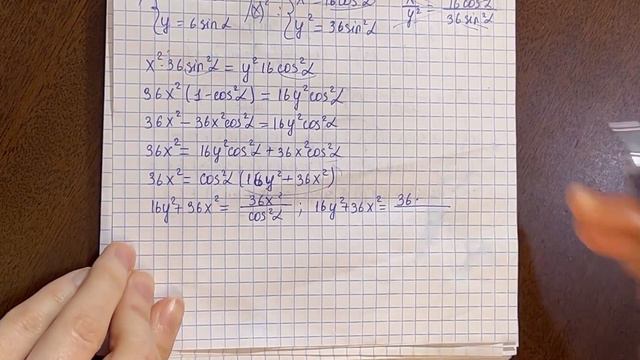 {y = 6sinα /(x)² : {y² = 36sin²α x²/y² = 16cos²α/36sin²α
x²·36sin²α = y²16cos²α
36x²(1-cos²α) = 16y²cos²α
36x² - 36x²cos²α = 16y²cos²α
36x² = 16y²cos²α + 36x²cos²α
36x² = cos²α (16y² + 36x²)
16y² + 36x² = 36x²/cos²α ; 16y² + 36x² = 36·